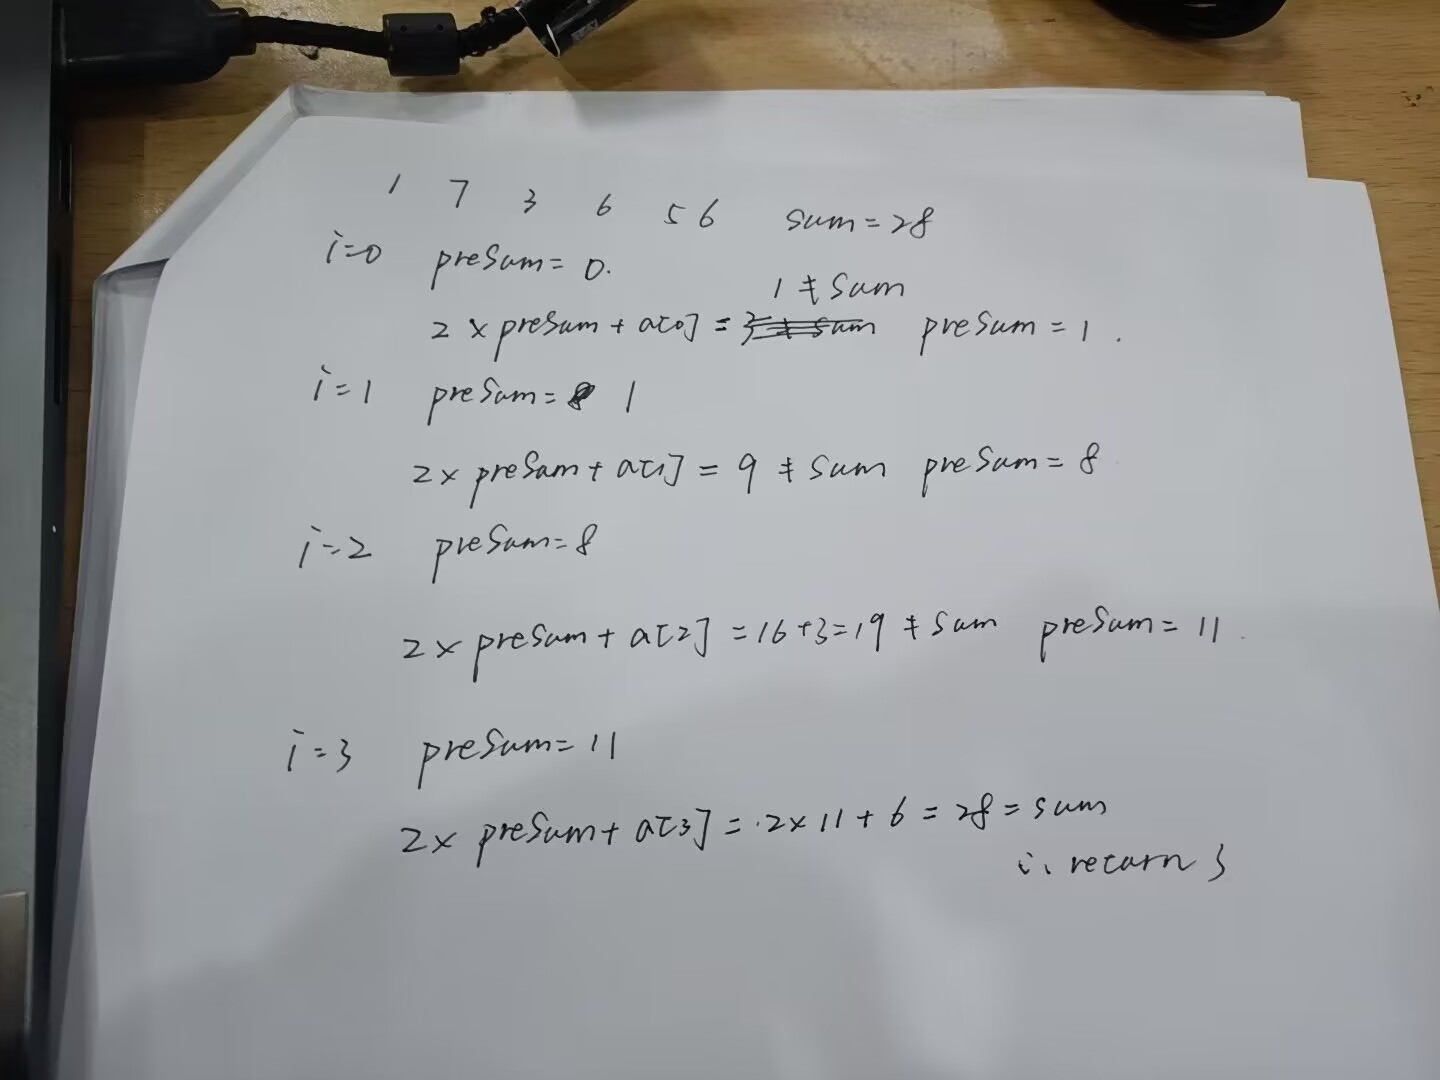 1 7 3 6 5 6 sum=28
i=0 preSum=0.
1≠Sum
2×preSum+a[0]= preSum=1.
i=1 preSum= 1
2×preSum+a[1]=9≠Sum preSum=8
i=2 preSum=8
2×preSum+a[2]=16+3=19≠Sum preSum=11.
i=3 preSum=11
2×preSum+a[3]=.2×11+6=28=sum
i. return 3